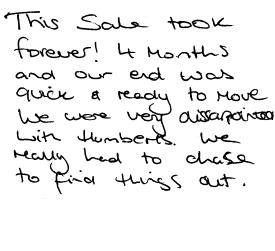 This Sale took
forever! 4 Months
and our end was
quick & ready to move
We were very disappointed
with Humberts. We
really had to chase
to find things out.